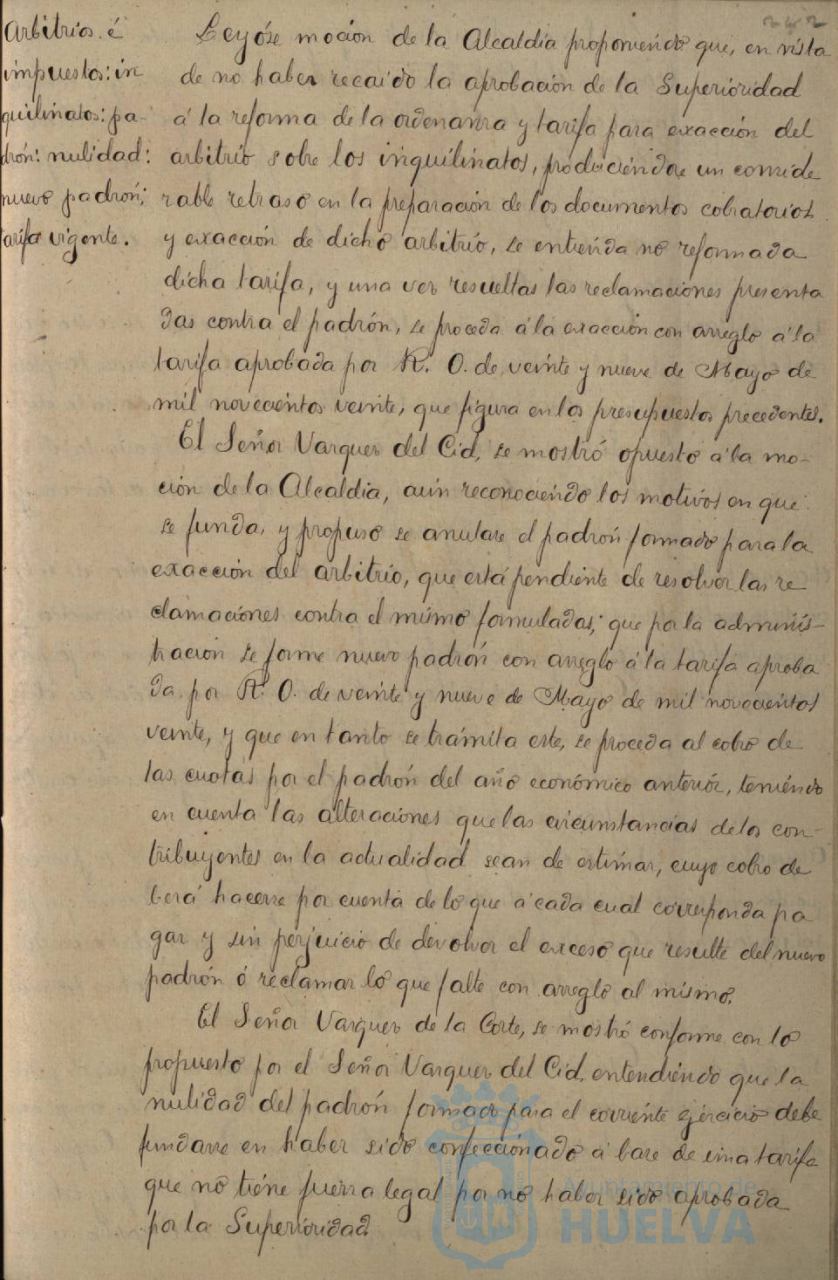 242
Arbitrios é
impuestos: in
quilinatos: pa-
drón: nulidad:
nuevo padrón;
tarifa vigente.
Leyóse moción de la Alcaldía proponiendo que, en vista
de no haber recaido la aprobación de la Superioridad
á la reforma de la ordenanza y tarifa para exacción del
arbitrio sobre los inquilinatos, produciéndose un conside
rable retraso en la preparación de los documentos cobratorios
y exacción de dicho arbitrio, se entienda no reformada
dicha tarifa, y una vez resueltas las reclamaciones presenta
das contra el padrón, se proceda á la exacción con arreglo á la
tarifa aprobada por R. O. de veinte y nueve de Mayo de
mil novecientos veinte, que figura en los presupuestos precedentes.
El Señor Vazquez del Cid, se mostró opuesto á la mo-
ción de la Alcaldia, aún reconociendo los motivos en que
se funda, y propuso se anulase el padrón formado para la
exacción del arbitrio, que está pendiente de resolver las re
clamaciones contra el mismo formuladas; que por la adminis-
tración se forme nuevo padrón con arreglo á la tarifa aproba
da por R. O. de veinte y nueve de Mayo de mil novecientos
veinte, y que en tanto se tramita este, se proceda al cobro de
las cuotas por el padrón del año económico anterior, teniendo
en cuenta las alteraciones que las circunstancias de los con-
tribuyentes en la actualidad sean de estimar, cuyo cobro de
berá hacerse por cuenta de lo que á cada cual corresponda pa
gar y sin perjuicio de devolver el exceso que resulte del nuevo
padrón ó reclamar lo que falte con arreglo al mismo.
El Señor Vazquez de la Corte, se mostró conforme con lo
propuesto por el Señor Vazquez del Cid, entendiendo que la
nulidad del padrón formado para el corriente ejercicio debe
fundarse en haber sido confeccionado á base de una tarifa
que no tiene fuerza legal por no haber sido aprobada
por la Superioridad.
Ayuntamiento de
HUELVA